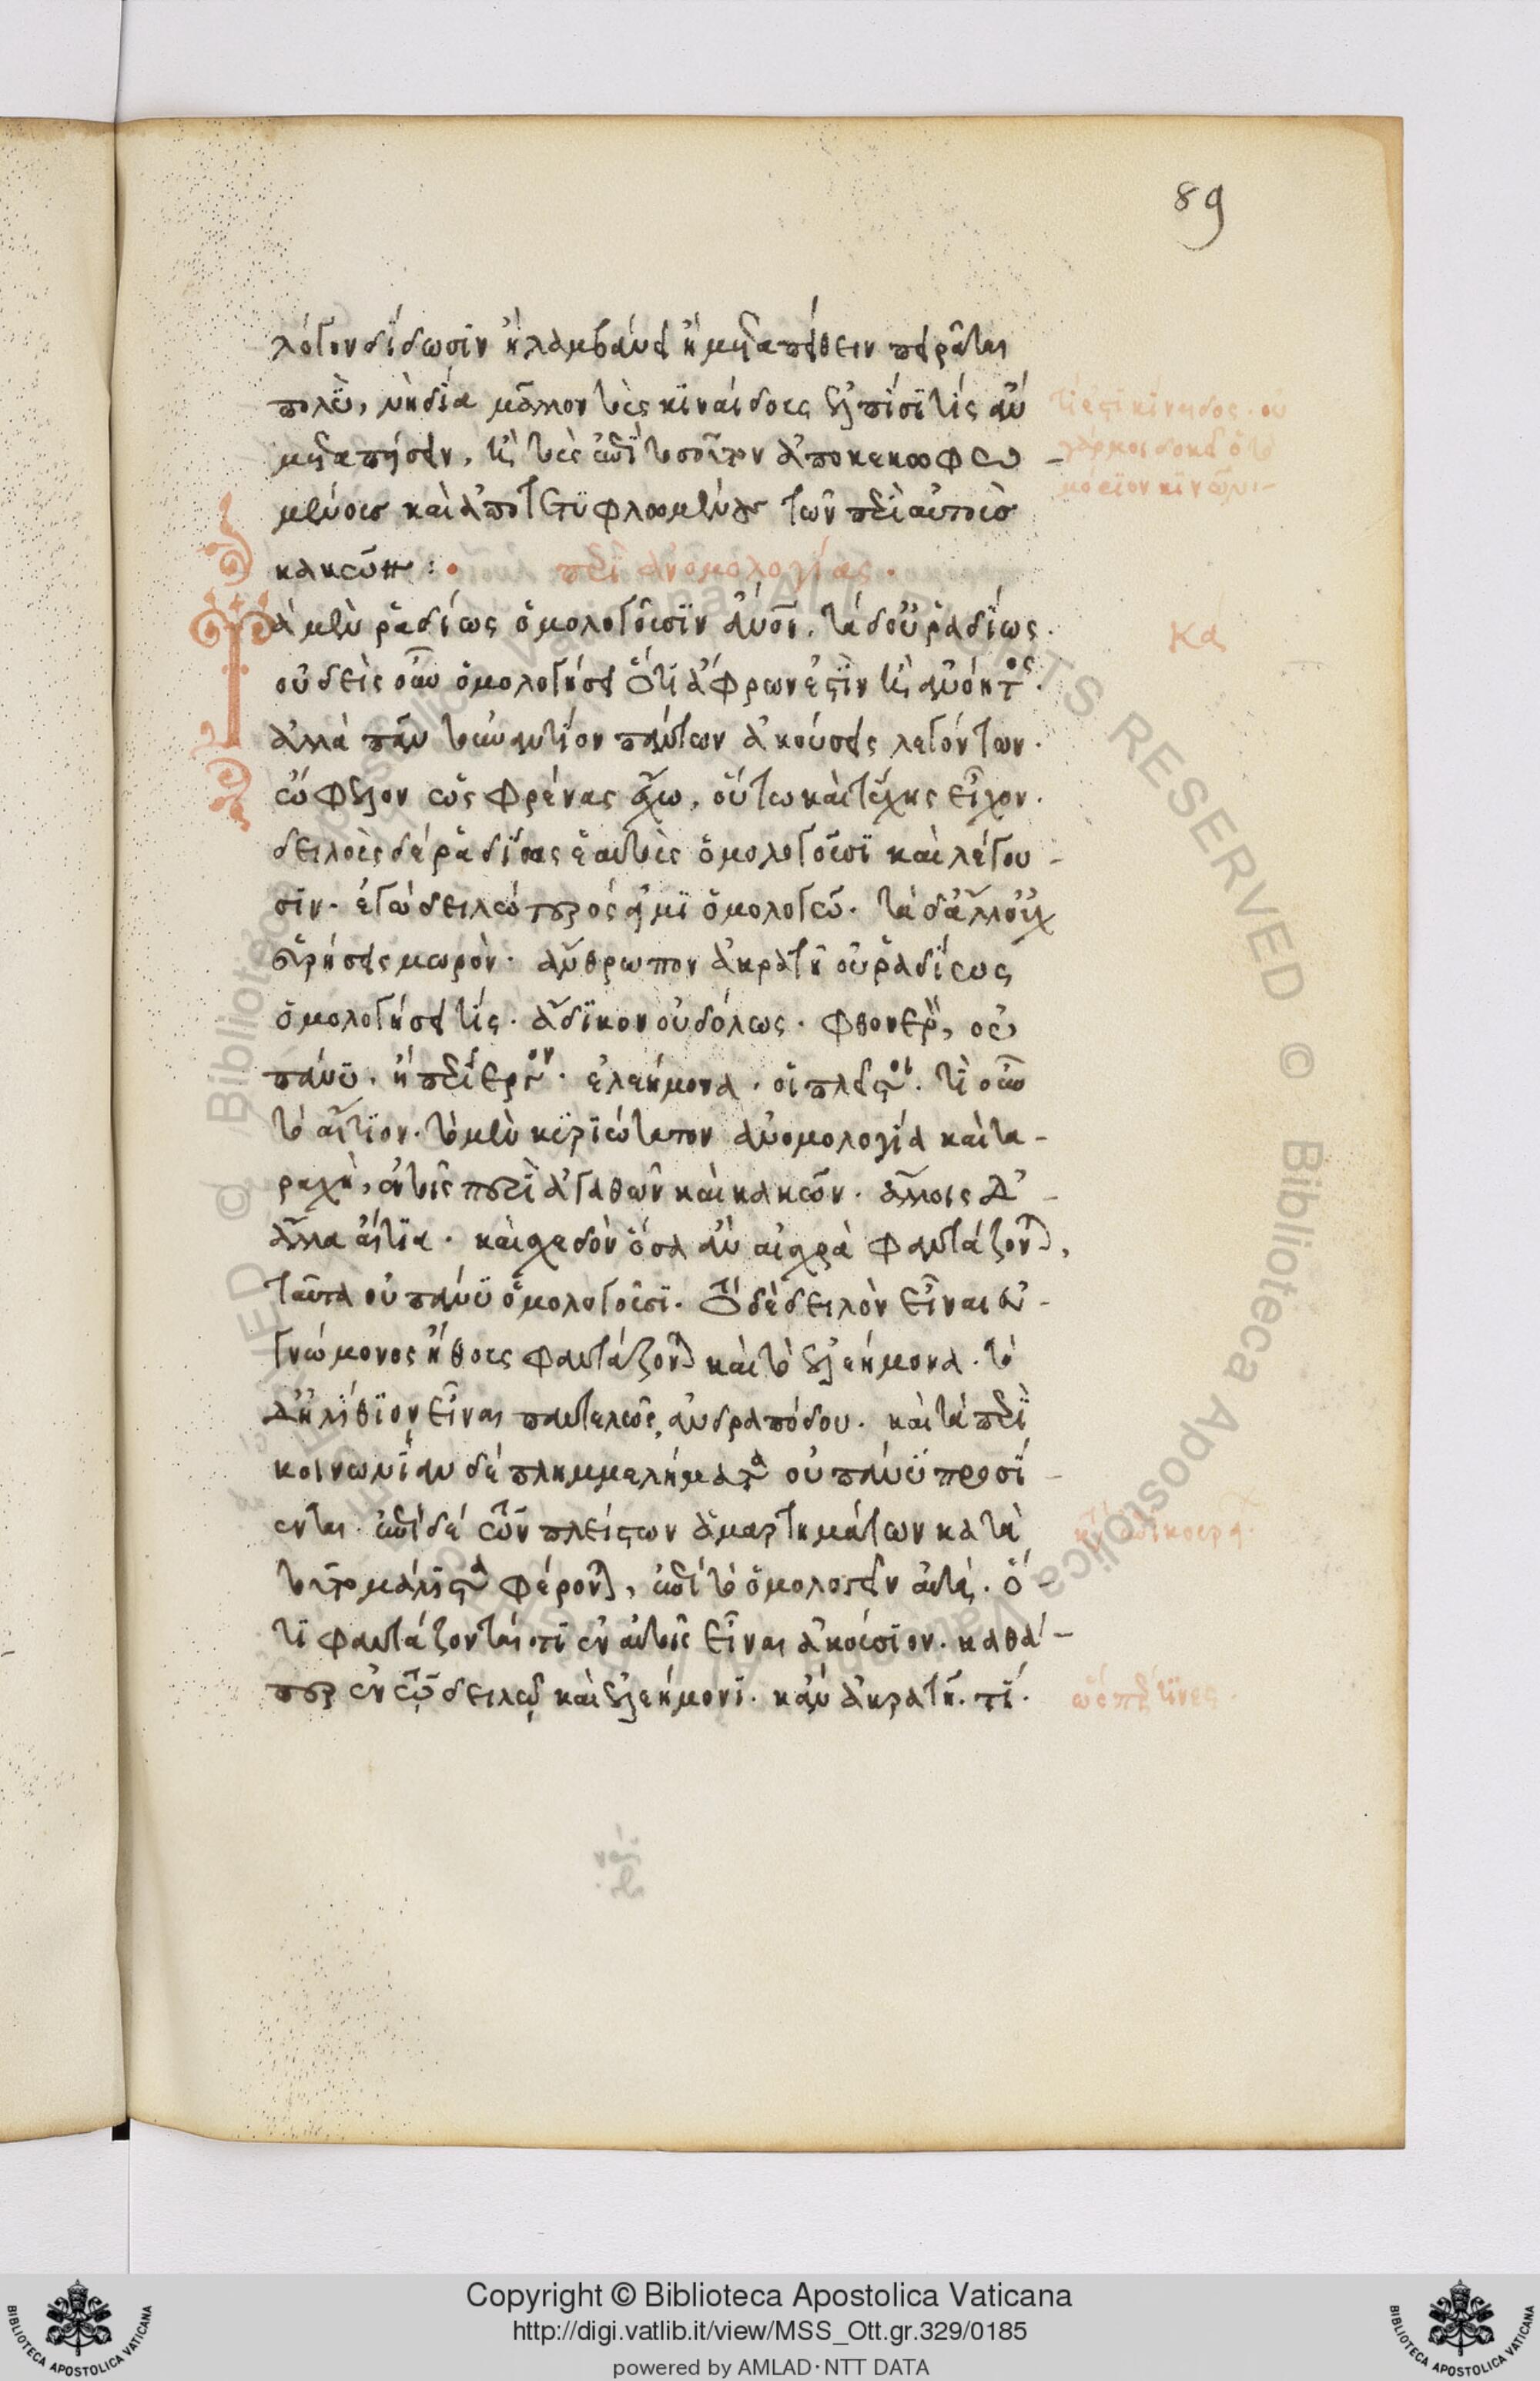 89
λόγον δίδωσιν ἢ λαμβάνει ἢ μεταπείθειν πειρᾶται
πολύ, νὴ δία μᾶλλον τοὺς κιναίδους ἐλπίσῃ τίς ἂν
μεταπείσειν, ἢ τοὺς ἐπὶ τοσοῦτον ἀποκεκωφω-
μένους καὶ ἀποτετυφλωμένους τῶν περὶ αὐτοὺς
κακῶν : περὶ ἀνομολογίας.
Τὰ μὲν ῥαδίως ὁμολογοῦσιν ἄνθρωποι. τὰ δ' οὐ ῥαδίως.
οὐδεὶς οὖν ὁμολογήσει ὅτι ἄφρων ἐστὶν ἢ ἀνόητος.
ἀλλὰ πᾶν τοὐναντίον πάντων ἀκούσεις λεγόντων.
κα
ὤφελον ὡς φρένας ἔχω, οὕτω καὶ τύχης εἶχον.
δειλοὺς δὲ ῥαδίως ἑαυτοὺς ὁμολογοῦσι καὶ λέγου-
σιν. ἐγὼ δειλότερός εἰμι ὁμολογῶ. τὰ δ' ἄλλ' οὐχ
εὑρήσεις μωρὸν. ἄνθρωπον ἀκρατῆ οὐ ῥαδίως
ὁμολογήσει τίς. ἄδικον οὐδ' ὅλως. φθονερὸν, οὐ
πάνυ. ἢ περίεργον. ἐλεήμονα. οἱ πλεῖστοι. τί οὖν
τὸ αἴτιον. τὸ μὲν κυριώτατον ἀνομολογία καὶ τα-
ραχὴ, ἐν τοῖς περὶ ἀγαθῶν καὶ κακῶν. ἄλλοις δ'
ἄλλα αἴτια. καὶ σχεδὸν ὅσα ἂν αἰσχρὰ φαντάζονται,
ταῦτα οὐ πάνυ ὁμολογοῦσι. τὸ δὲ δειλὸν εἶναι εὐ-
γνώμονος ἤθους φαντάζονται καὶ τὸ ἐλεήμονα. τὸ
δ' ἠλίθιον εἶναι παντελῶς ἀνδραπόδου. καὶ τὰ περὶ
κοινωνίαν δὲ πλημμελήματα οὐ πάνυ προσί-
ενται. ἐπὶ δὲ τῶν πλείστων ἁμαρτημάτων κατὰ
τοῦτο μάλιστα φέρονται, ἐπὶ τὸ ὁμολογεῖν αὐτά. ὅ-
τι φαντάζονταί τι ἐν αὐτοῖς εἶναι ἀκούσιον. καθά-
περ ἐν τῷ δειλῷ καὶ ἐλεήμονι. κἂν ἀκρατῆ τί.